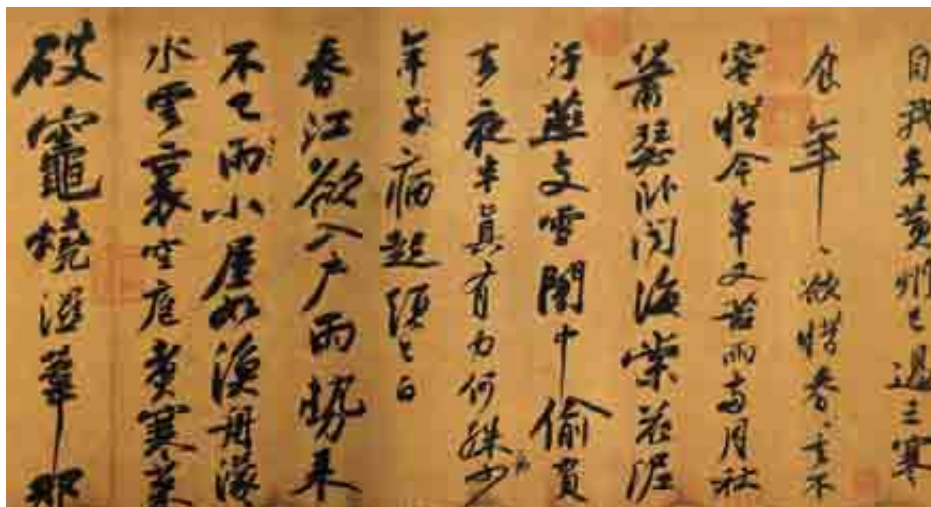 自我来黄州已過三寒
食年〻欲惜春〻去不
容惜今年又苦雨兩月秋
蕭瑟卧聞海棠花泥
汙燕支雪闇中偷負
去夜半真有力何殊少
病
年子病起須已白
春江欲入户雨勢来
不已雨小屋如漁舟濛
水雲裏空庖煮寒菜
破竈燒濕葦那